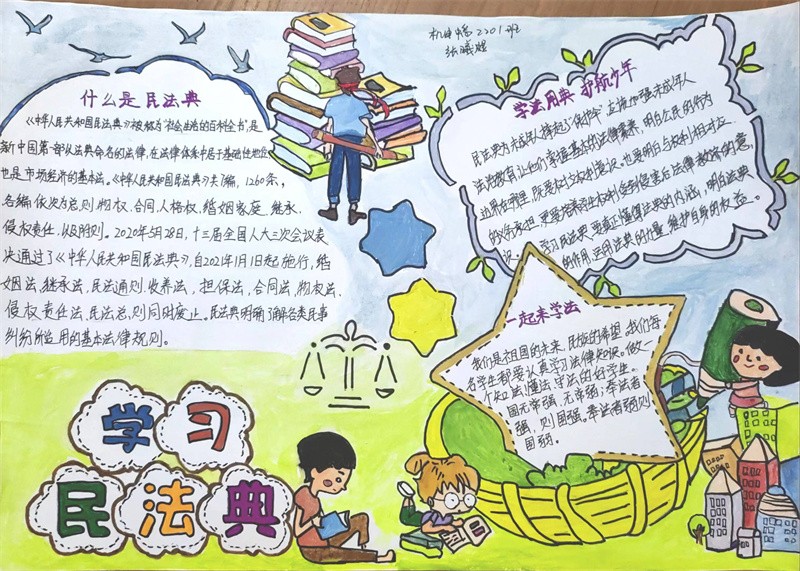 机电幅2201班
张曦煜
什么是民法典
《中华人民共和国民法典》被称为“社会生活的百科全书”,是
新中国第一部以法典命名的法律,在法律体系中居于基础性地位
也是市场经济的基本法。《中华人民共和国民法典》共7编,1260条,
各编依次为总则物权、合同、人格权、婚姻家庭、继承、
侵权责任,以及附则。2020年5月28日,十三届全国人大三次会议表
决通过了《中华人民共和国民法典》,自2021年1月1日起施行,婚
姻法,继承法,民法通则,收养法,担保法,合同法,物权法,
侵权责任法,民法总则同时废止。民法典明确了解各类民事
纠纷所适用的基本法律规则。
学法用典 护航少年
民法典为未成年人撑起了“保护伞”,应该加强未成年人
法治教育,让他们掌握基本的法律素养,明白公民的行为
边界在哪里,既要树立权利意识,也要明白与权利相对应
的义务
学习民法典,要真正懂得法典的内涵,明白法典
的作用,运用法典的力量,维护自身的权益。
一起来学法
我们是祖国的未来,民族的希望,我们每
名学生都要认真学习法律知识。做一
个知法、懂法、守法的好学生。
国无常强,无常弱,奉法者
强,则国强。奉法者弱则
国弱。
学习
民法典